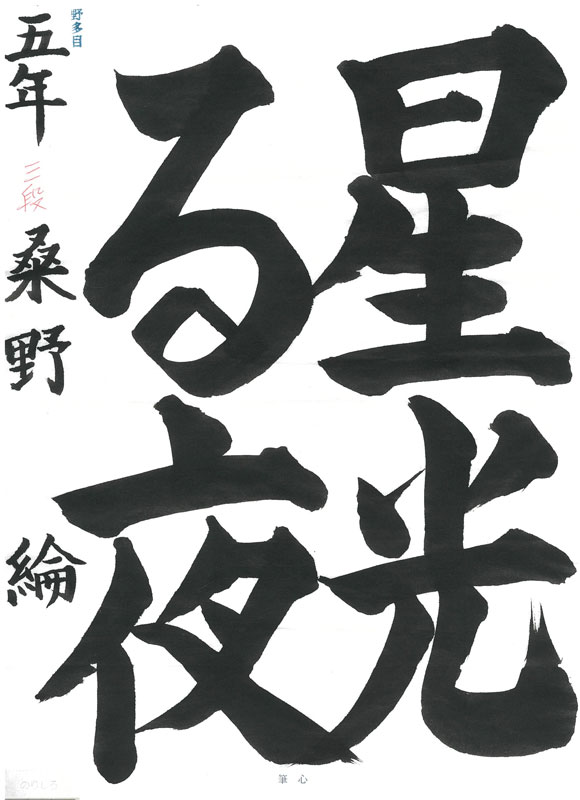 星光
る夜
野多目
五年
三段
桑野
綸
筆心
のりしろ